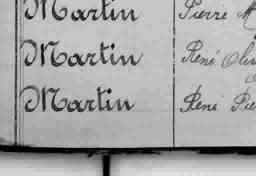 Martin Pierre M
Martin René Oli
Martin René Pie